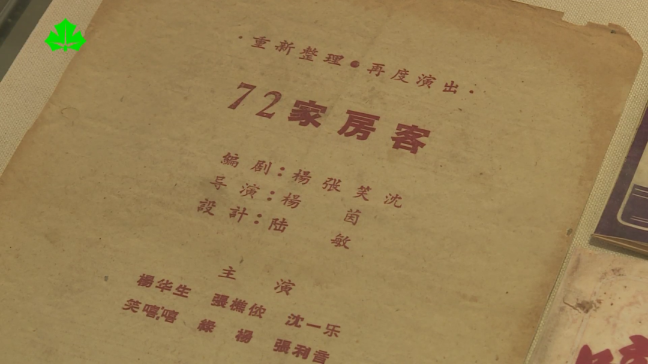 ·重新整理●再度演出·
72家房客
編剧：楊張笑沈
导演：楊 茵
設計：陆 敏
主演
楊华生 張樵侬 沈一乐
笑嘻嘻 綠楊 張利音